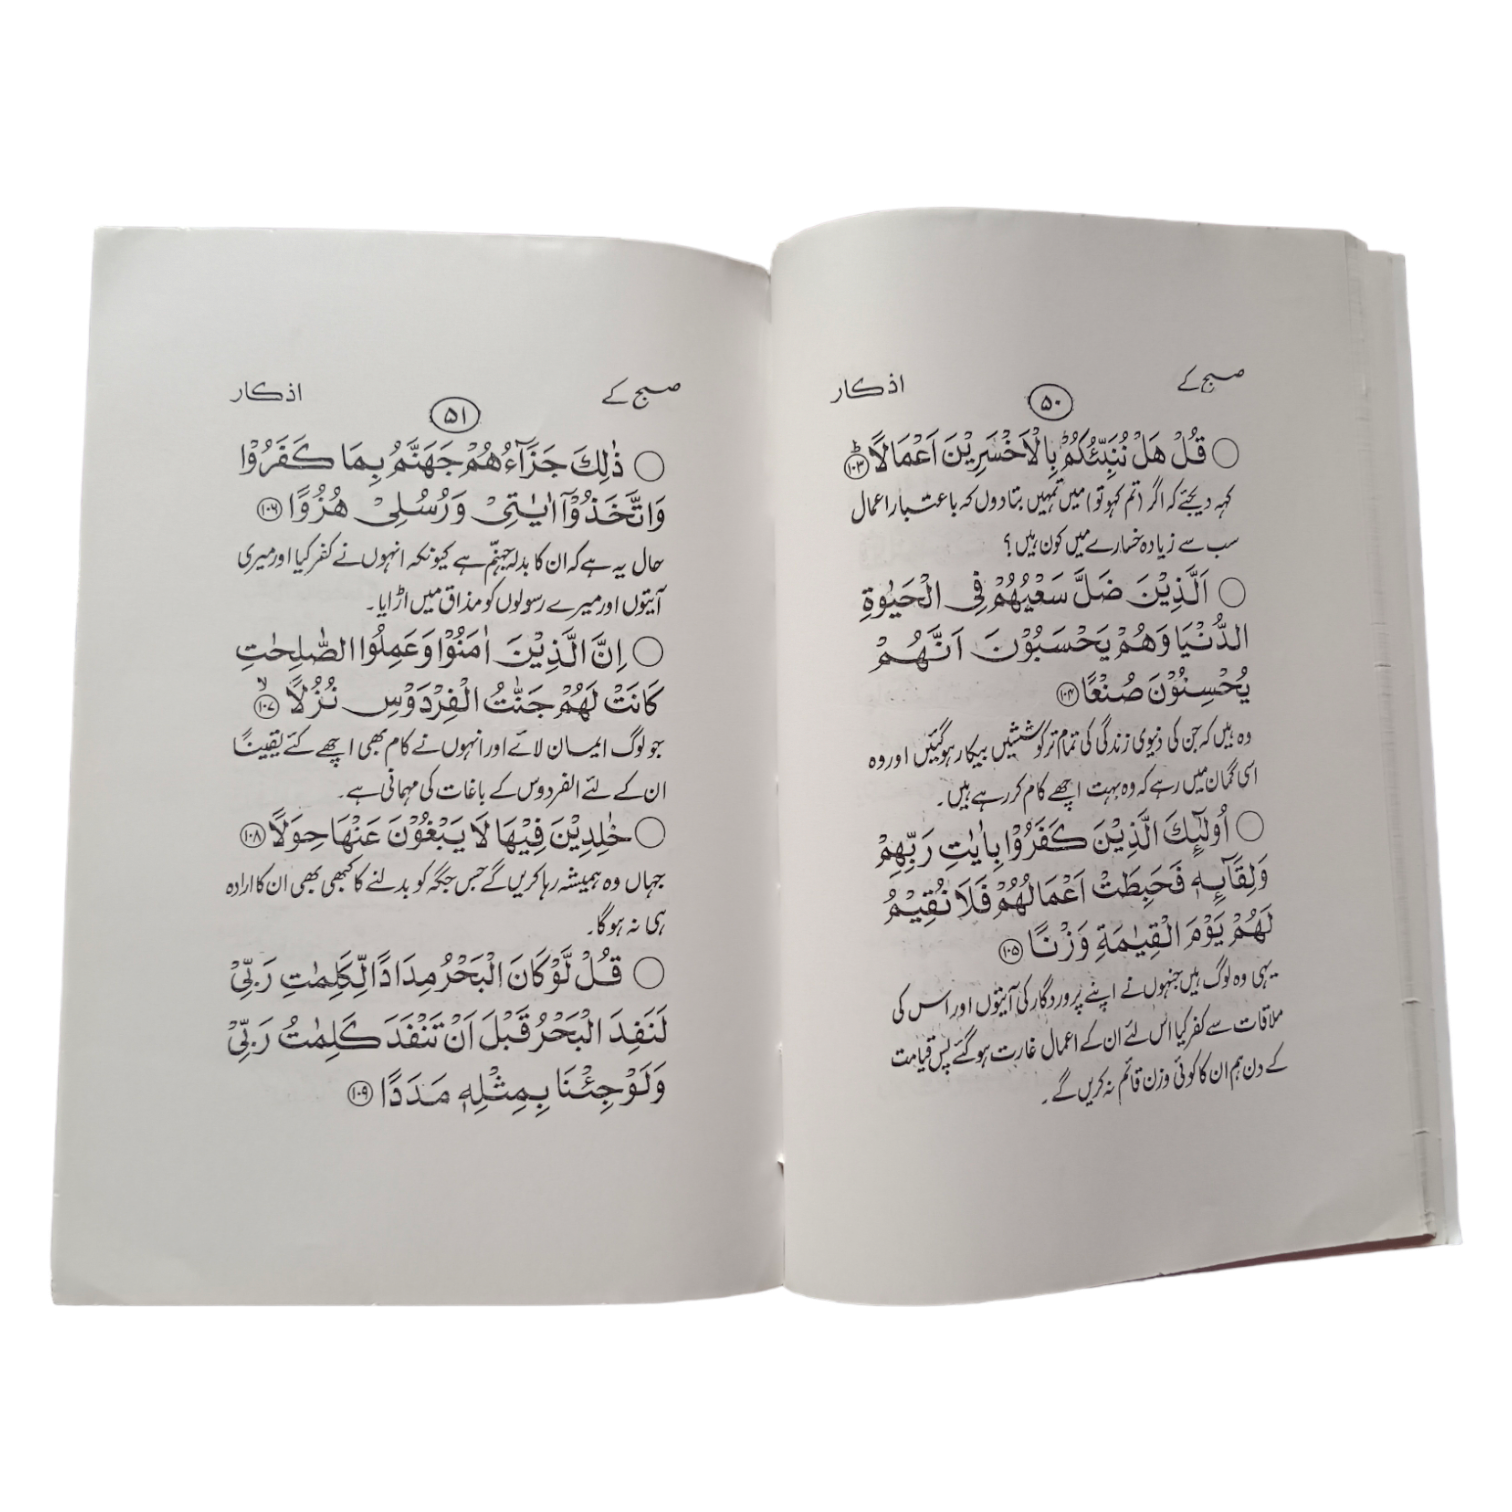 صبح کے ۵۰ اذکار
○ قُلْ هَلْ نُنَبِّئُكُمْ بِالْاَخْسَرِیْنَ اَعْمَالًا ؕ ۱۰۳
کہہ دیجئے کہ اگر (تم کہو تو) میں تمہیں بتا دوں کہ باعتبار اعمال
سب سے زیادہ خسارے میں کون ہیں؟
○ اَلَّذِیْنَ ضَلَّ سَعْیُهُمْ فِی الْحَیٰوةِ
الدُّنْیَا وَهُمْ یَحْسَبُوْنَ اَنَّهُمْ
یُحْسِنُوْنَ صُنْعًا ۱۰۴
وہ ہیں کہ جن کی دنیوی زندگی کی تمام تر کوششیں بیکار ہو گئیں اور وہ
اسی گمان میں رہے کہ وہ بہت اچھے کام کر رہے ہیں۔
○ اُولٰٓئِكَ الَّذِیْنَ كَفَرُوْا بِاٰیٰتِ رَبِّهِمْ
وَلِقَآئِهٖ فَحَبِطَتْ اَعْمَالُهُمْ فَلَا نُقِیْمُ
لَهُمْ یَوْمَ الْقِیٰمَةِ وَزْنًا ۱۰۵
یہی وہ لوگ ہیں جنہوں نے اپنے پروردگار کی آیتوں اور اس کی
ملاقات سے کفر کیا اس لئے ان کے اعمال غارت ہو گئے پس قیامت
کے دن ہم ان کا کوئی وزن قائم نہ کریں گے۔
صبح کے ۵۱ اذکار
○ ذٰلِكَ جَزَآؤُهُمْ جَهَنَّمُ بِمَا كَفَرُوْا
وَاتَّخَذُوْۤا اٰیٰتِیْ وَرُسُلِیْ هُزُوًا ۱۰۶
حال یہ ہے کہ ان کا بدلہ جہنّم ہے کیونکہ انہوں نے کفر کیا اور میری
آیتوں اور میرے رسولوں کو مذاق میں اڑایا۔
○ اِنَّ الَّذِیْنَ اٰمَنُوْا وَعَمِلُوا الصّٰلِحٰتِ
كَانَتْ لَهُمْ جَنّٰتُ الْفِرْدَوْسِ نُزُلًا ۙ ۱۰۷
جو لوگ ایمان لائے اور انہوں نے کام بھی اچھے کئے یقینًا
ان کے لئے الفردوس کے باغات کی مہمانی ہے۔
○ خٰلِدِیْنَ فِیْهَا لَا یَبْغُوْنَ عَنْهَا حِوَلًا ۱۰۸
جہاں وہ ہمیشہ رہا کریں گے جس جگہ کو بدلنے کا کبھی بھی ان کا ارادہ
ہی نہ ہوگا۔
○ قُلْ لَّوْ كَانَ الْبَحْرُ مِدَادًا لِّكَلِمٰتِ رَبِّیْ
لَنَفِدَ الْبَحْرُ قَبْلَ اَنْ تَنْفَدَ كَلِمٰتُ رَبِّیْ
وَلَوْ جِئْنَا بِمِثْلِهٖ مَدَدًا ۱۰۹